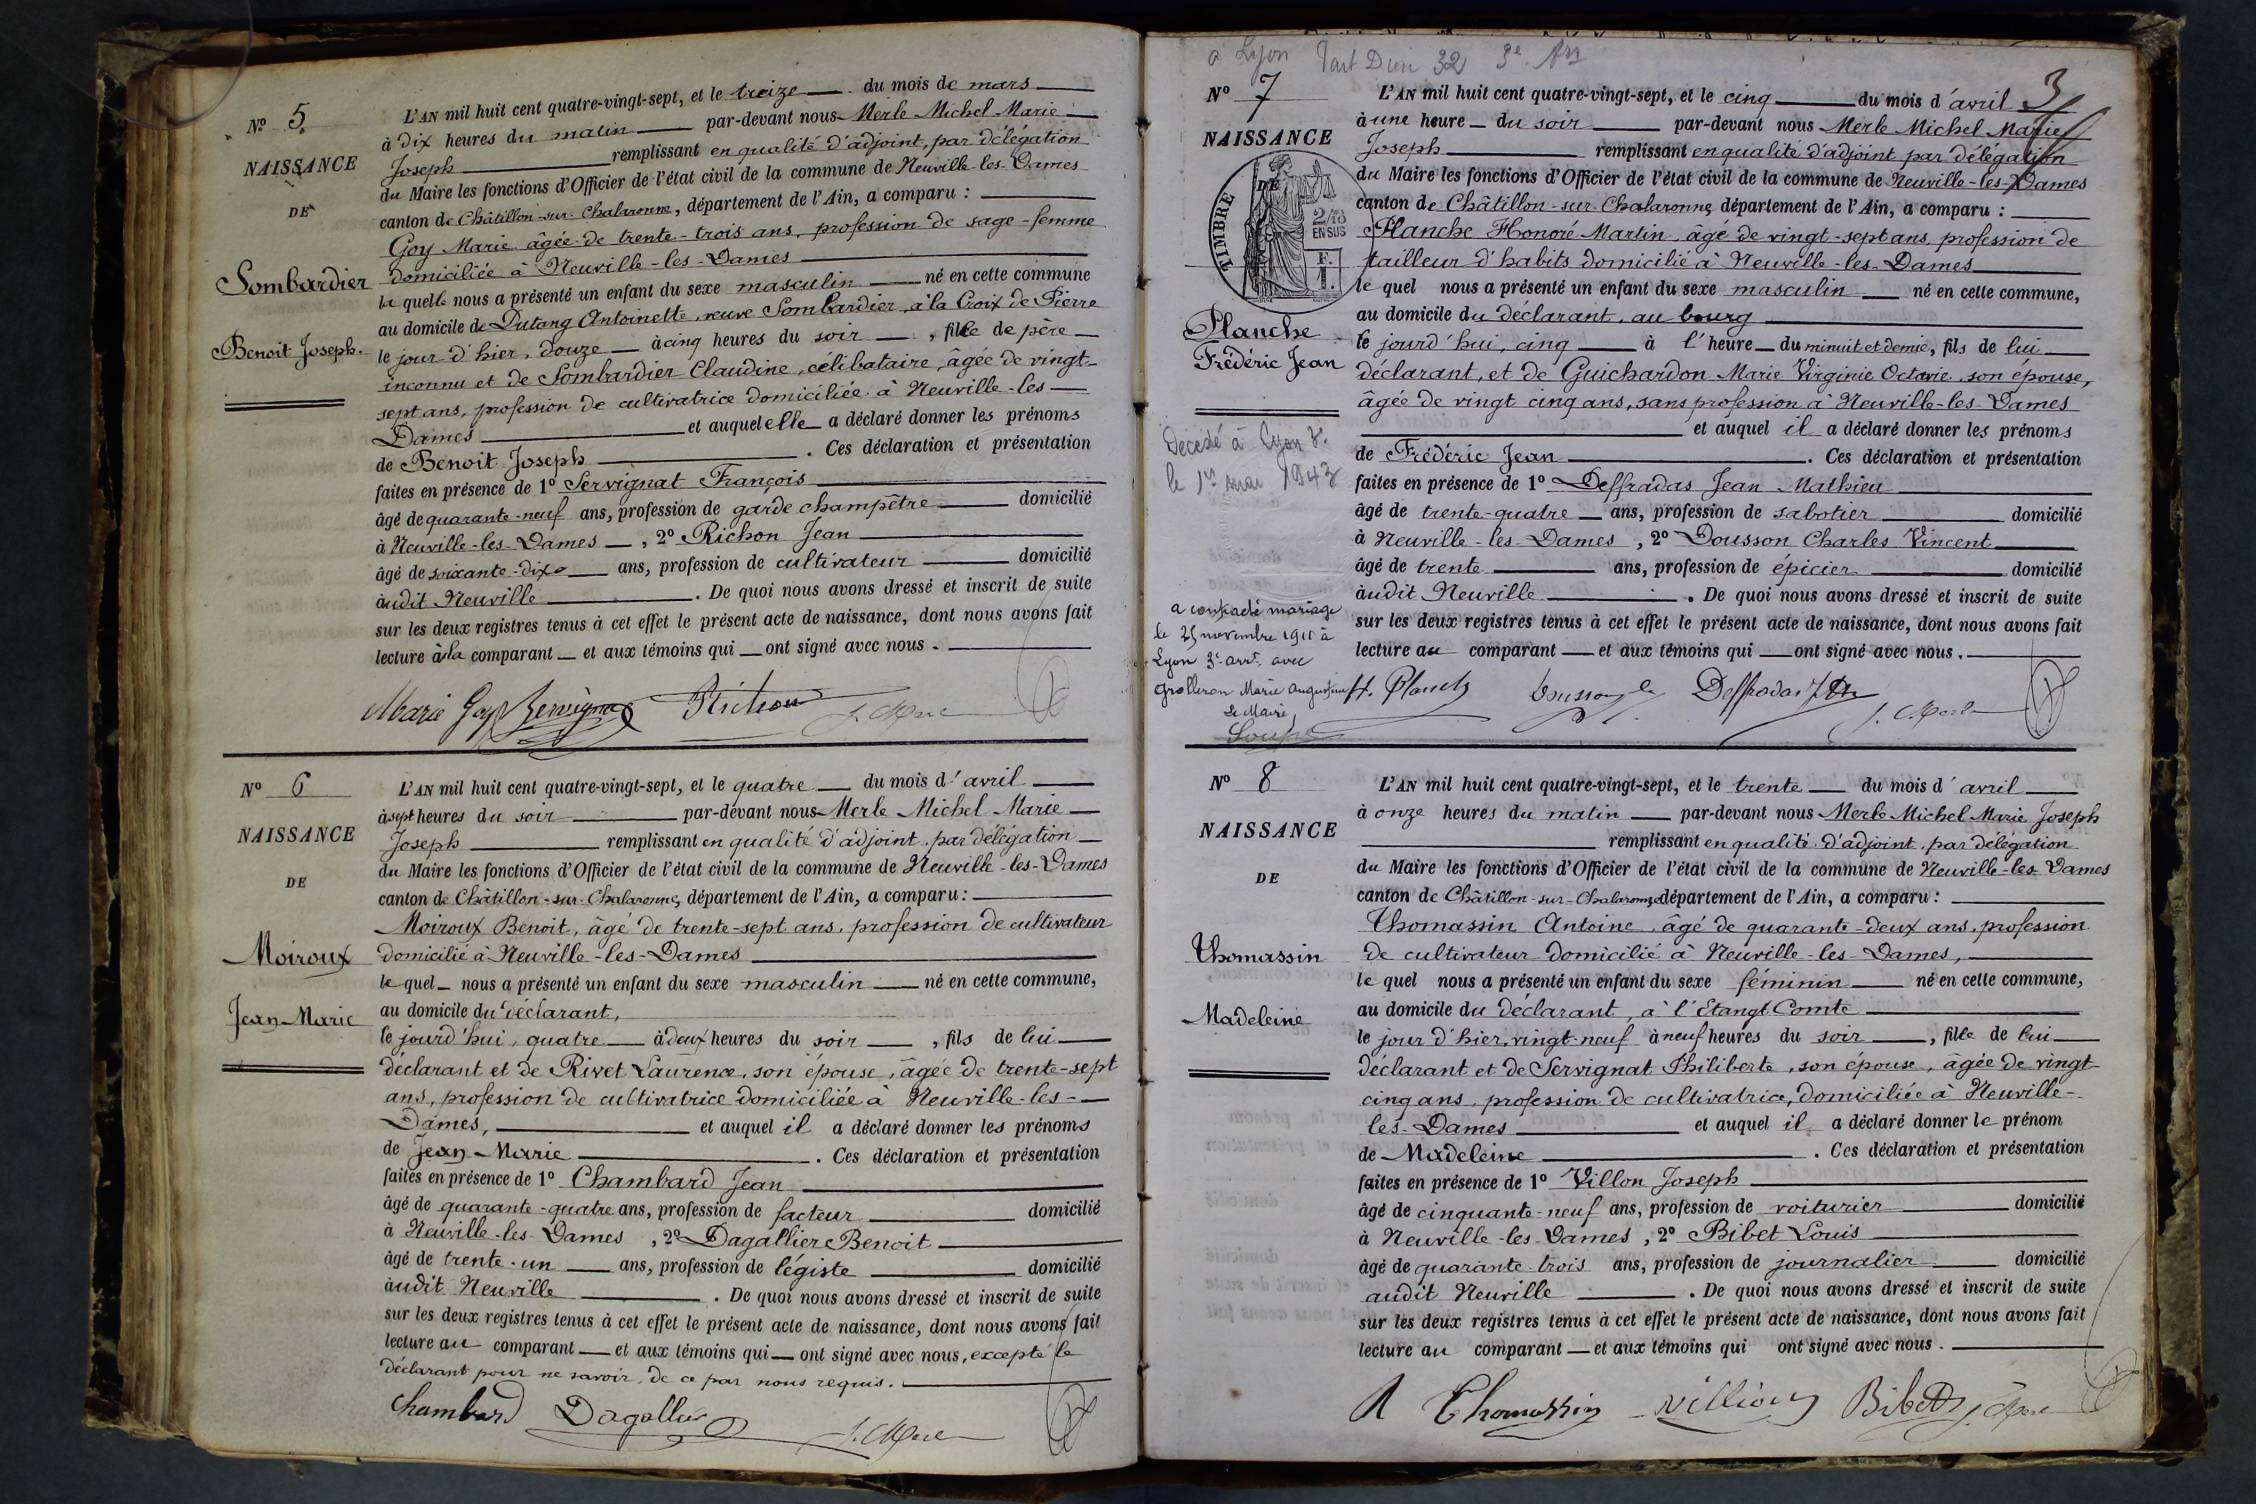 Nº 5
NAISSANCE
DE
Sombardier
Benoit Joseph.
L'AN mil huit cent quatre-vingt-sept, et le treize du mois de mars
à dix heures du matin par-devant nous Merle Michel Marie
Joseph remplissant en qualité d'adjoint, par délégation
du Maire les fonctions d'Officier de l'état civil de la commune de Neuville-les-Dames
canton de Châtillon-sur-Chalaronne, département de l'Ain, a comparu :
Goy Marie âgée de trente-trois ans, profession de sage-femme
domiciliée à Neuville-les-Dames
la quelle nous a présenté un enfant du sexe masculin né en cette commune
au domicile de Dutang Antoinette, veuve Sombardier, à la Croix de Pierre
le jour d'hier, douze à cinq heures du soir, fils de père
inconnu et de Sombardier Claudine, célibataire, âgée de vingt-
sept ans, profession de cultivatrice domiciliée à Neuville-les-
Dames et auquel elle a déclaré donner les prénoms
de Benoit Joseph. Ces déclaration et présentation
faites en présence de 1º Servignat François
âgé de quarante-neuf ans, profession de garde champêtre domicilié
à Neuville-les-Dames, 2º Richon Jean
âgé de soixante-dix ans, profession de cultivateur domicilié
audit Neuville. De quoi nous avons dressé et inscrit de suite
sur les deux registres tenus à cet effet le présent acte de naissance, dont nous avons fait
lecture à la comparant et aux témoins qui ont signé avec nous.
Marie Goy Servignat Richon J. Merle
Nº 6
NAISSANCE
DE
Moiroux
Jean-Marie
L'AN mil huit cent quatre-vingt-sept, et le quatre du mois d'avril
à sept heures du soir par-devant nous Merle Michel Marie
Joseph remplissant en qualité d'adjoint, par délégation
du Maire les fonctions d'Officier de l'état civil de la commune de Neuville-les-Dames
canton de Châtillon-sur-Chalaronne, département de l'Ain, a comparu :
Moiroux Benoit, âgé de trente-sept ans, profession de cultivateur
domicilié à Neuville-les-Dames
le quel nous a présenté un enfant du sexe masculin né en cette commune,
au domicile du déclarant,
le jourd'hui, quatre à deux heures du soir, fils de lui
déclarant et de Rivet Laurence, son épouse, âgée de trente-sept
ans, profession de cultivatrice domiciliée à Neuville-les-
Dames, et auquel il a déclaré donner les prénoms
de Jean-Marie. Ces déclaration et présentation
faites en présence de 1º Chambard Jean
âgé de quarante-quatre ans, profession de facteur domicilié
à Neuville-les-Dames, 2º Dagallier Benoit
âgé de trente-un ans, profession de légiste domicilié
audit Neuville. De quoi nous avons dressé et inscrit de suite
sur les deux registres tenus à cet effet le présent acte de naissance, dont nous avons fait
lecture au comparant et aux témoins qui ont signé avec nous, excepté le
déclarant pour ne savoir, de ce par nous requis.
Chambard Dagallier J. Merle
à Lyon Part Dieu 32 3e Arr
3
Nº 7
NAISSANCE
DE
TIMBRE
2/10 EN SUS
F. 1.
Planche
Frédéric Jean
Décédé à Lyon
le 1er mai 1943
a contracté mariage
le 25 novembre 1911 à
Lyon 3e arrt avec
Grolleron Marie Augustine
Le Maire,
L'AN mil huit cent quatre-vingt-sept, et le cinq du mois d'avril
à une heure du soir par-devant nous Merle Michel Marie
Joseph remplissant en qualité d'adjoint par délégation
du Maire les fonctions d'Officier de l'état civil de la commune de Neuville-les-Dames
canton de Châtillon-sur-Chalaronne, département de l'Ain, a comparu :
Planche Honoré-Martin, âgé de vingt-sept ans, profession de
tailleur d'habits domicilié à Neuville-les-Dames
le quel nous a présenté un enfant du sexe masculin né en cette commune,
au domicile du déclarant, au bourg
le jourd'hui, cinq à l'heure du minuit et demie, fils de lui
déclarant, et de Guichardon Marie Virginie Octavie, son épouse,
âgée de vingt cinq ans, sans profession à Neuville-les-Dames
et auquel il a déclaré donner les prénoms
de Frédéric Jean. Ces déclaration et présentation
faites en présence de 1º Deffradas Jean Mathieu
âgé de trente-quatre ans, profession de sabotier domicilié
à Neuville-les-Dames, 2º Dousson Charles Vincent
âgé de trente ans, profession de épicier domicilié
audit Neuville. De quoi nous avons dressé et inscrit de suite
sur les deux registres tenus à cet effet le présent acte de naissance, dont nous avons fait
lecture au comparant et aux témoins qui ont signé avec nous.
H. Planche Dousson Deffradas J. Merle
Nº 8
NAISSANCE
DE
Thomassin
Madeleine
L'AN mil huit cent quatre-vingt-sept, et le trente du mois d'avril
à onze heures du matin par-devant nous Merle Michel Marie Joseph
remplissant en qualité d'adjoint, par délégation
du Maire les fonctions d'Officier de l'état civil de la commune de Neuville-les-Dames
canton de Châtillon-sur-Chalaronne département de l'Ain, a comparu :
Thomassin Antoine, âgé de quarante-deux ans, profession
de cultivateur domicilié à Neuville-les-Dames,
le quel nous a présenté un enfant du sexe féminin né en cette commune,
au domicile du déclarant, à l'Etang Comte
le jour d'hier, vingt-neuf à neuf heures du soir, fille de lui
déclarant et de Servignat Philiberte, son épouse, âgée de vingt
cinq ans, profession de cultivatrice, domiciliée à Neuville-
les-Dames et auquel il a déclaré donner le prénom
de Madeleine. Ces déclaration et présentation
faites en présence de 1º Villon Joseph
âgé de cinquante-neuf ans, profession de voiturier domicilié
à Neuville-les-Dames, 2º Bibet Louis
âgé de quarante trois ans, profession de journalier domicilié
audit Neuville. De quoi nous avons dressé et inscrit de suite
sur les deux registres tenus à cet effet le présent acte de naissance, dont nous avons fait
lecture au comparant et aux témoins qui ont signé avec nous.
A Thomassin Villion Bibet J. Merle